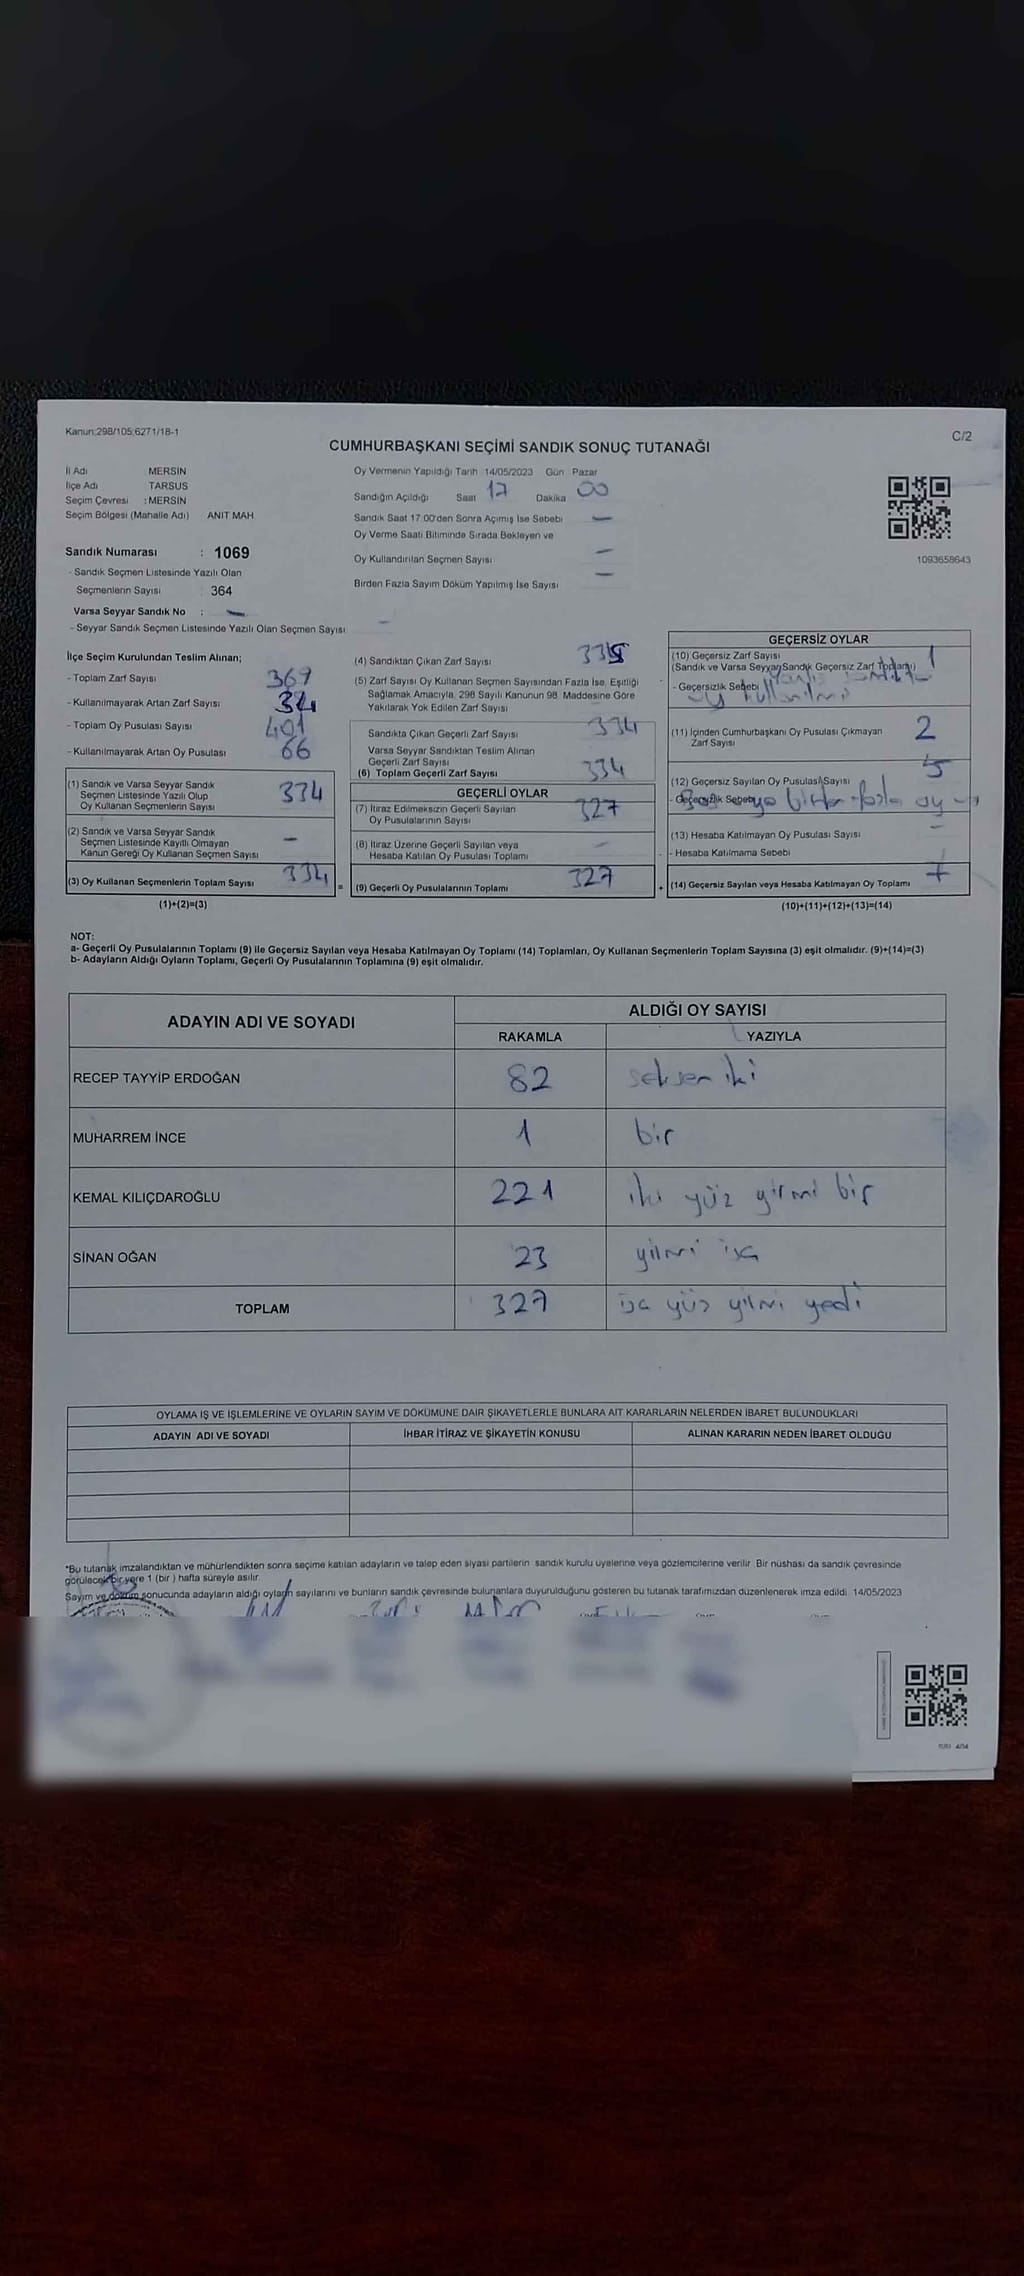 Kanun;298/105;6271/18-1
C/2
CUMHURBAŞKANI SEÇİMİ SANDIK SONUÇ TUTANAĞI
İl Adı MERSİN
İlçe Adı TARSUS
Seçim Çevresi : MERSİN
Seçim Bölgesi (Mahalle Adı) ANIT MAH
Sandık Numarası : 1069
- Sandık Seçmen Listesinde Yazılı Olan
Seçmenlerin Sayısı 364
Varsa Seyyar Sandık No : -
- Seyyar Sandık Seçmen Listesinde Yazılı Olan Seçmen Sayısı -
Oy Vermenin Yapıldığı Tarih 14/05/2023 Gün Pazar
Sandığın Açıldığı Saat 17 Dakika 00
Sandık Saat 17:00'den Sonra Açımış İse Sebebi -
Oy Verme Saati Bitiminde Sırada Bekleyen ve
Oy Kullandırılan Seçmen Sayısı -
Birden Fazla Sayım Döküm Yapılmış İse Sayısı -
1093658643
İlçe Seçim Kurulundan Teslim Alınan;
- Toplam Zarf Sayısı 369
- Kullanılmayarak Artan Zarf Sayısı 34
- Toplam Oy Pusulası Sayısı 401
- Kullanılmayarak Artan Oy Pusulası 66
(1) Sandık ve Varsa Seyyar Sandık
Seçmen Listesinde Yazılı Olup
Oy Kullanan Seçmenlerin Sayısı 334
(2) Sandık ve Varsa Seyyar Sandık
Seçmen Listesinde Kayıtlı Olmayan
Kanun Gereği Oy Kullanan Seçmen Sayısı -
(3) Oy Kullanan Seçmenlerin Toplam Sayısı 334 =
(1)+(2)=(3)
(4) Sandıktan Çıkan Zarf Sayısı 335
(5) Zarf Sayısı Oy Kullanan Seçmen Sayısından Fazla İse, Eşitliği
Sağlamak Amacıyla, 298 Sayılı Kanunun 98. Maddesine Göre
Yakılarak Yok Edilen Zarf Sayısı
Sandıkta Çıkan Geçerli Zarf Sayısı 334
Varsa Seyyar Sandıktan Teslim Alınan
Geçerli Zarf Sayısı
(6) Toplam Geçerli Zarf Sayısı 334
GEÇERLİ OYLAR
(7) İtiraz Edilmeksizin Geçerli Sayılan
Oy Pusulalarının Sayısı 327
(8) İtiraz Üzerine Geçerli Sayılan veya
Hesaba Katılan Oy Pusulası Toplamı -
(9) Geçerli Oy Pusulalarının Toplamı 327 +
GEÇERSİZ OYLAR
(10) Geçersiz Zarf Sayısı 1
(Sandık ve Varsa Seyyar Sandık Geçersiz Zarf Toplamı)
- Geçersizlik Sebebi oy kullanılmış
(11) İçinden Cumhurbaşkanı Oy Pusulası Çıkmayan
Zarf Sayısı 2
(12) Geçersiz Sayılan Oy Pusulası Sayısı 5
- Geçersizlik Sebebi birden fazla oy
(13) Hesaba Katılmayan Oy Pusulası Sayısı -
- Hesaba Katılmama Sebebi
(14) Geçersiz Sayılan veya Hesaba Katılmayan Oy Toplamı 7
(10)+(11)+(12)+(13)=(14)
NOT:
a- Geçerli Oy Pusulalarının Toplamı (9) ile Geçersiz Sayılan veya Hesaba Katılmayan Oy Toplamı (14) Toplamları, Oy Kullanan Seçmenlerin Toplam Sayısına (3) eşit olmalıdır. (9)+(14)=(3)
b- Adayların Aldığı Oyların Toplamı, Geçerli Oy Pusulalarının Toplamına (9) eşit olmalıdır.
ADAYIN ADI VE SOYADI ALDIĞI OY SAYISI
RAKAMLA YAZIYLA
RECEP TAYYİP ERDOĞAN 82 seksen iki
MUHARREM İNCE 1 bir
KEMAL KILIÇDAROĞLU 221 iki yüz yirmi bir
SİNAN OĞAN 23 yirmi üç
TOPLAM 327 üç yüz yirmi yedi
OYLAMA İŞ VE İŞLEMLERİNE VE OYLARIN SAYIM VE DÖKÜMÜNE DAİR ŞİKAYETLERLE BUNLARA AİT KARARLARIN NELERDEN İBARET BULUNDUKLARI
ADAYIN ADI VE SOYADI İHBAR İTİRAZ VE ŞİKAYETİN KONUSU ALINAN KARARIN NEDEN İBARET OLDUĞU
*Bu tutanak imzalandıktan ve mühürlendikten sonra seçime katılan adayların ve talep eden siyasi partilerin sandık kurulu üyelerine veya gözlemcilerine verilir. Bir nüshası da sandık çevresinde
görülecek bir yere 1 (bir ) hafta süreyle asılır.
Sayım ve döküm sonucunda adayların aldığı oyların sayılarını ve bunların sandık çevresinde bulunanlara duyurulduğunu gösteren bu tutanak tarafımızdan düzenlenerek imza edildi. 14/05/2023